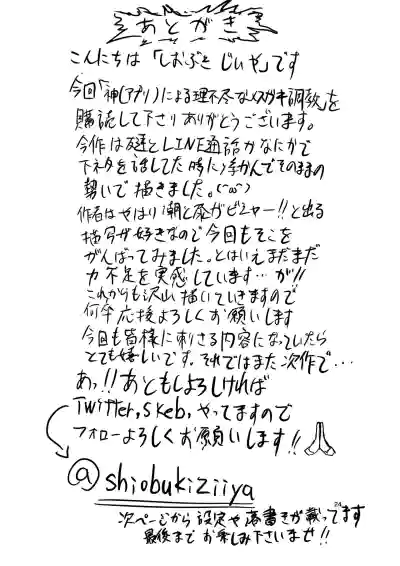 あとがき
こんにちは「しおぶき じいや」です
今回「神(アプリ)による理不尽なメスガキ調教」を
購読して下さりありがとうございます。
今作は友達とLINE通話かなにかで
下ネタを話してた時に浮かんでそのままの
勢いで描きました。(^ω^)
作者はやはり潮と尿がビシャー!!と出る
描写が好きなので今回もそこを
がんばってみました。とはいえまだまだ
力不足を実感しています…が!!
これからも沢山描いていきますので
何卒応援よろしくお願いします
今回も皆様に刺さる内容になっていたら
とても嬉しいです。それではまた次作で…
あっ!!あともしよろしければ
Twitter,Skeb,やってますので
フォローよろしくお願いします!!
@shiobukiziiya
次ページから設定や落書きが載ってます
最後までお楽しみ下さいませ!!